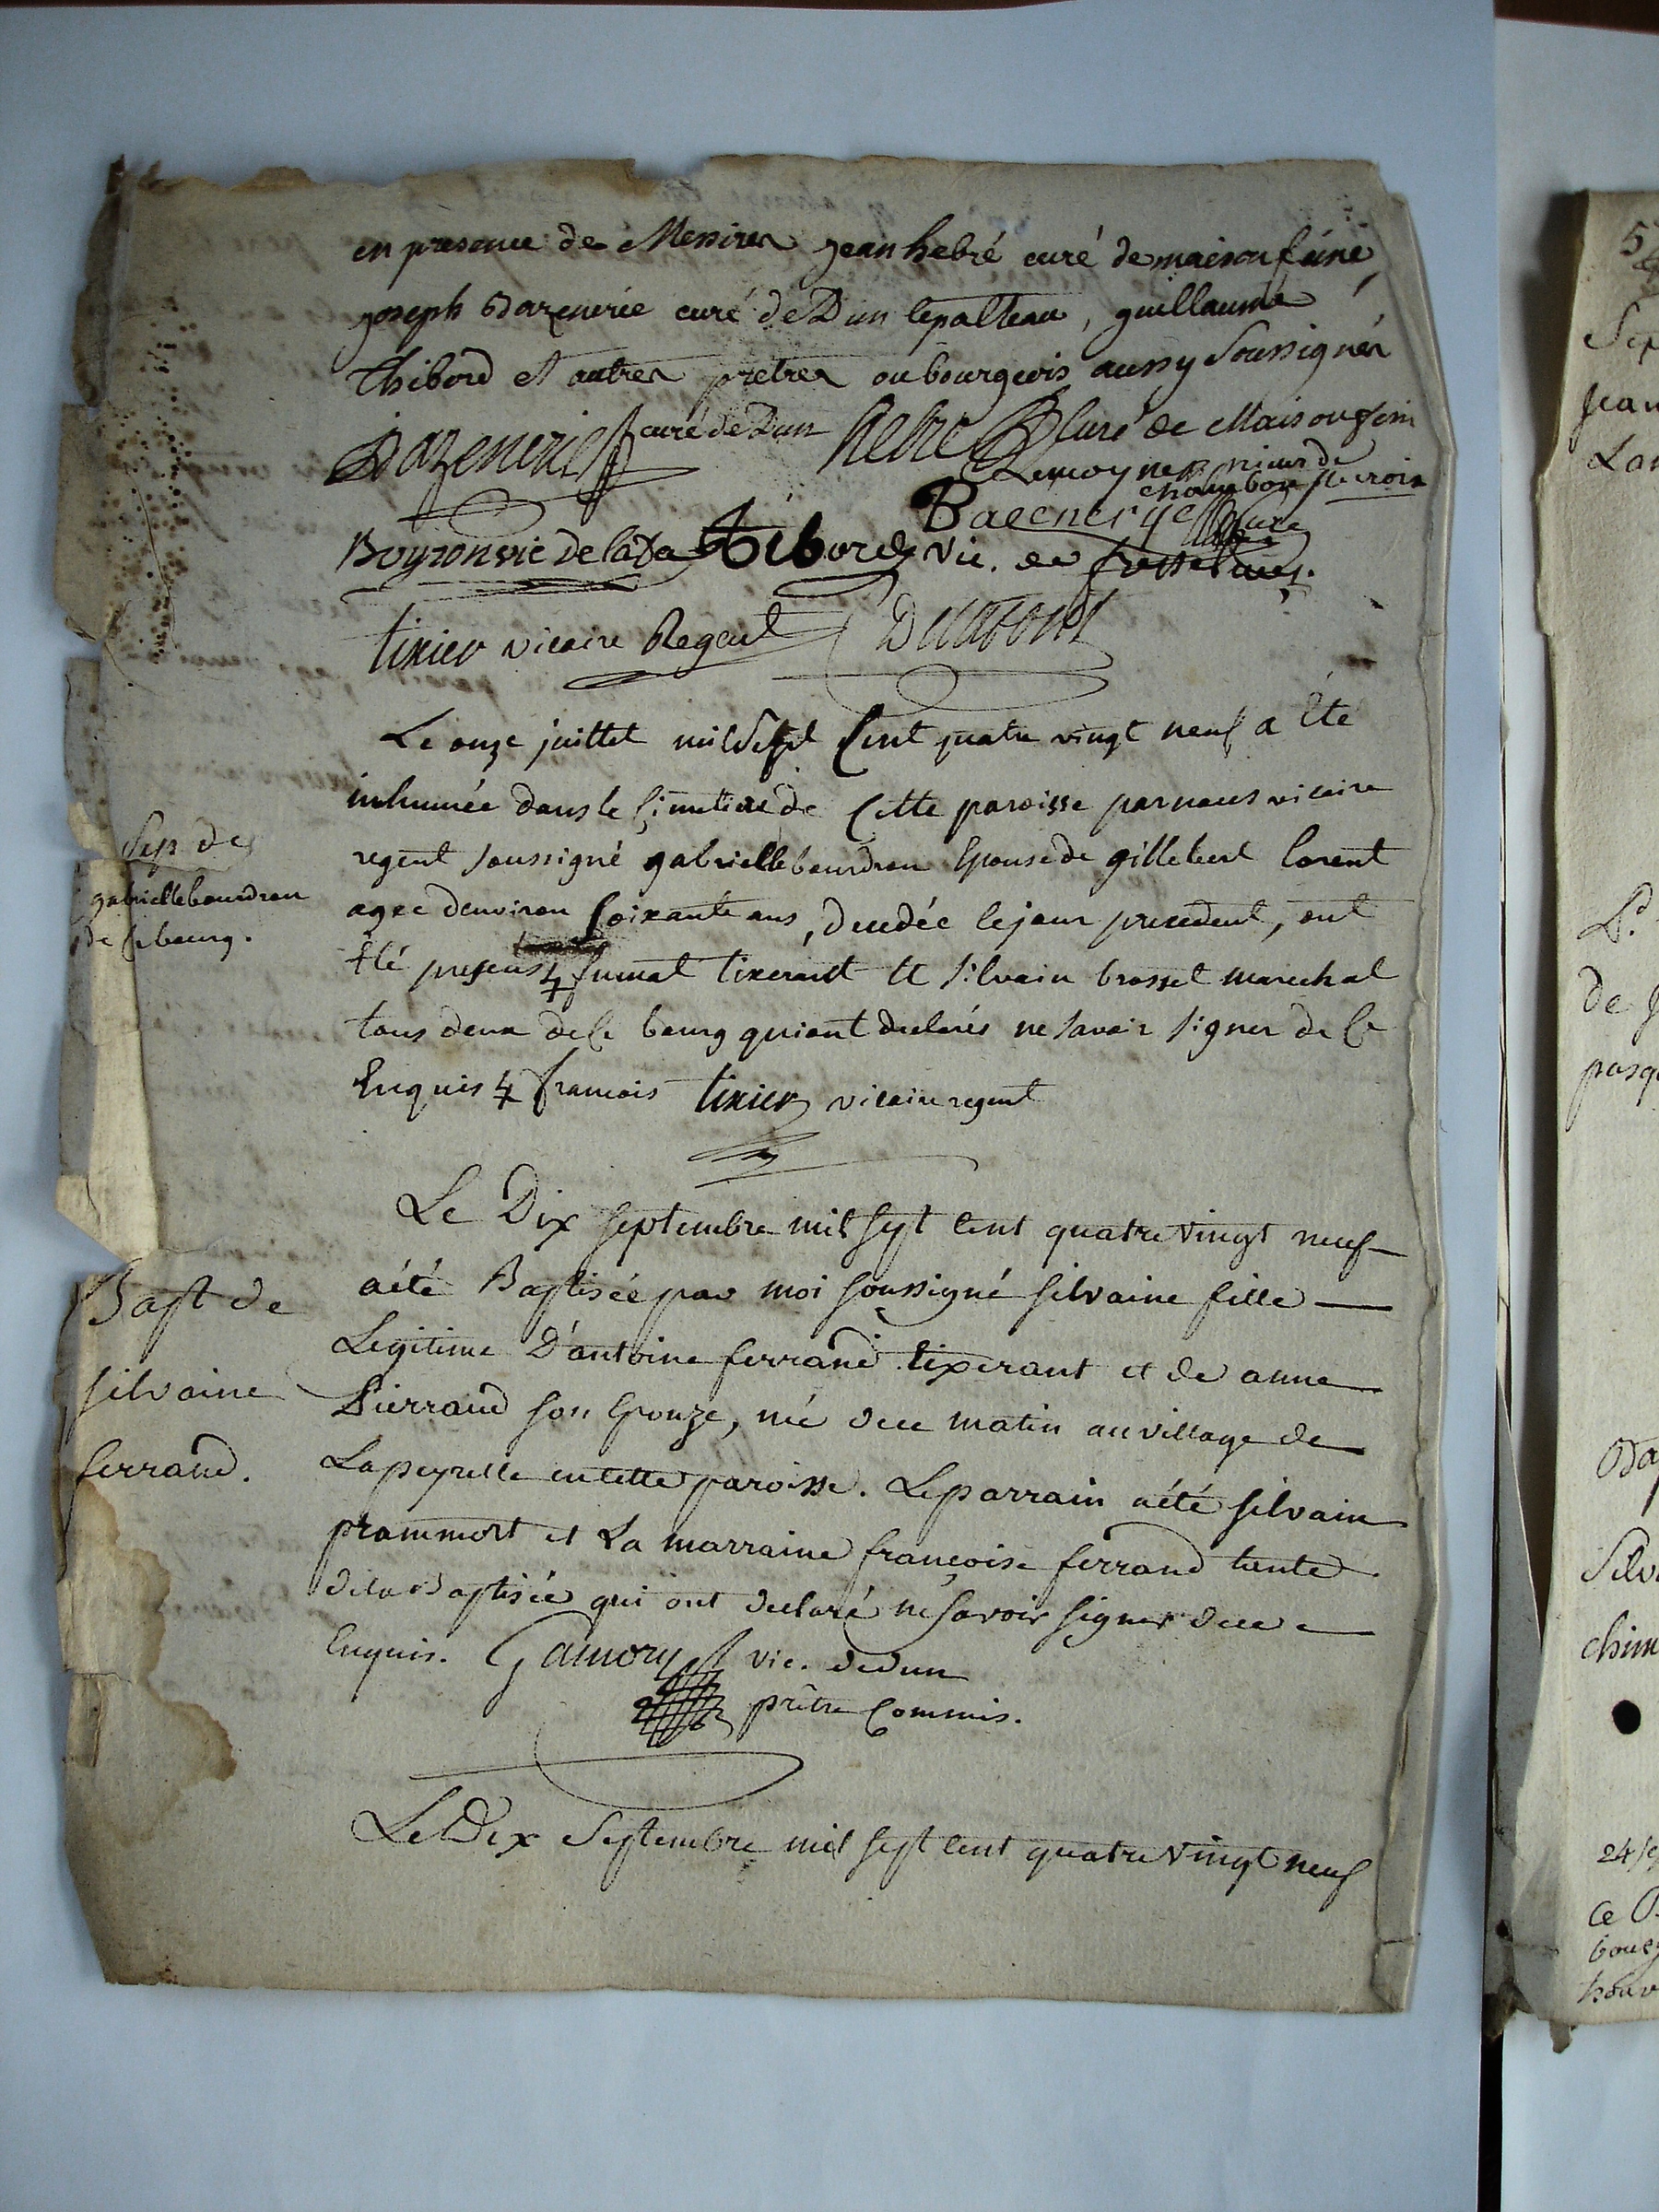 en presence de Messires jean hebré curé de maisonfeine,
joseph Dazenerie curé de Dun lepalteau, guillaume
Thibord et autres pretres ou bourgeois aussy Soussignés
Dazenerie curé de Dun hebré Curé de Maisonfein
Lemoyne prieur de
chambon ste croix
Boyron vic de lada Tibord vic. de
tixier vicaire Regent
Le onze juillet mil Sept Cent quatre vingt neuf a Eté
inhumée dans le Cimetiere de Cette paroisse par nous vicaire
regent soussigné gabrielle bourdron Epouse de gillebert lorent
agee denviron soixante ans, decedée le jour precedent, ont
Eté presens 4 fumat tixerant et silvain brosset marechal
tous deux de Ce bourg qui ont declarés ne savoir signer de Ce
Enquis 4 francois tixier vicaire regent
Sep de
gabrielle bourdron
de Ce bourg.
Le Dix septembre mil sept cent quatre vingt neuf
a été Baptisée par moi soussigné silvaine fille
Legitime D'antoine ferrand tixerant et de anne
Pierraud son Epouze, né dece matin au village de
Lapeyrelle en cette paroisse. Le parrain a été silvain
prammort et La marraine françoise ferrand tante
de la Baptisée qui ont declaré ne savoir signer de ce
Enquis. Gamory vic. dedun
prêtre Commis.
Bapt de
silvaine
ferrand.
Le Dix Septembre mil sept cent quatre vingt neuf
5
Sep
jean
Lan
de
pasq
Silv
chim
24 sep
Ce
bourg